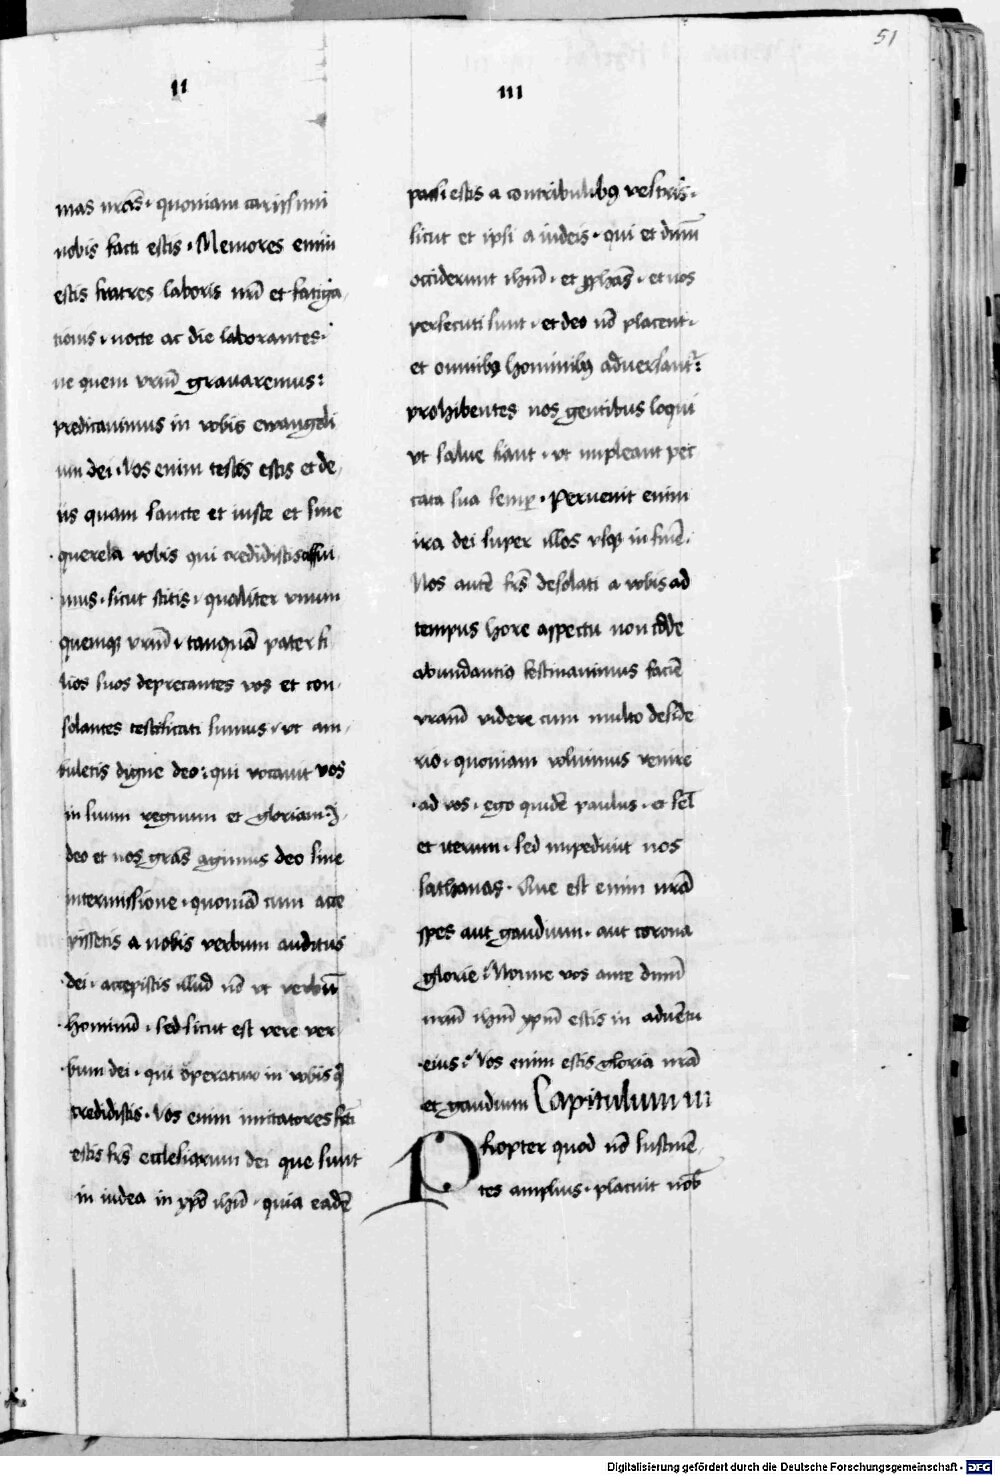 51
II
mas nr̄as · quoniam carissimi
nobis facti estis · Memores enim
estis fratres laboris nr̄i et fatiga
tionis · nocte ac die laborantes ·
ne quem vr̄um grauaremus :
predicauimus in vobis ewangeli
um dei · Vos enim testes estis et de
us quam sancte et iuste et sine
querela vobis qui credidistis affui
mus · sicut scitis · qualiter vnum
quemq; vr̄um · tanquā pater fi
lios suos deprecantes vos et con
solantes testificati sumus · vt am
buletis digne deo : qui vocauit vos
in suum regnum et gloriam · I
deo et nos gr̄as agimus deo sine
intermissione · quoniā cum acce
pissetis a nobis verbum auditus
dei · accepistis illud nō vt verbū
hominū · sed sicut est vere ver
bum dei · qui operatur in vobis q̄
credidistis · Vos enim imitatores fc̄i
estis fr̄s ecclesiarum dei que sunt
in iudea in xp̄o ih̄u · quia eadē
III
passi estis a contribulibꝰ vestris ·
sicut et ipsi a iudeis · qui et dn̄m
occiderunt ihm̄ · et ꝓphās · et nos
persecuti sunt · et deo nō placent ·
et omnibꝰ hominibꝰ aduersant᷑ :
prohibentes nos gentibus loqui
vt salue fiant · vt impleant pec
cata sua semꝑ · Peruenit enim
ira dei super illos vsq; in finē ·
Nos autē fr̄s desolati a vobis ad
tempus hore aspectu non corde
abundantiꝰ festinauimus faciē
vr̄am videre cum multo deside
rio · quoniam voluimus venire
ad vos · ego quidē paulus · et sel̄
et iterum · sed impediuit nos
sathanas · Que est enim nr̄a
spes aut gaudium · aut corona
glorie ? Nonne vos ante dn̄m
nr̄m ihm̄ xp̄m estis in aduētu
eius ? Vos enim estis gloria nr̄a
et gaudium Capitulum III
Propter quod nō sustinē
tes amplius · placuit nob̄
Digitalisierung gefördert durch die Deutsche Forschungsgemeinschaft - DFG